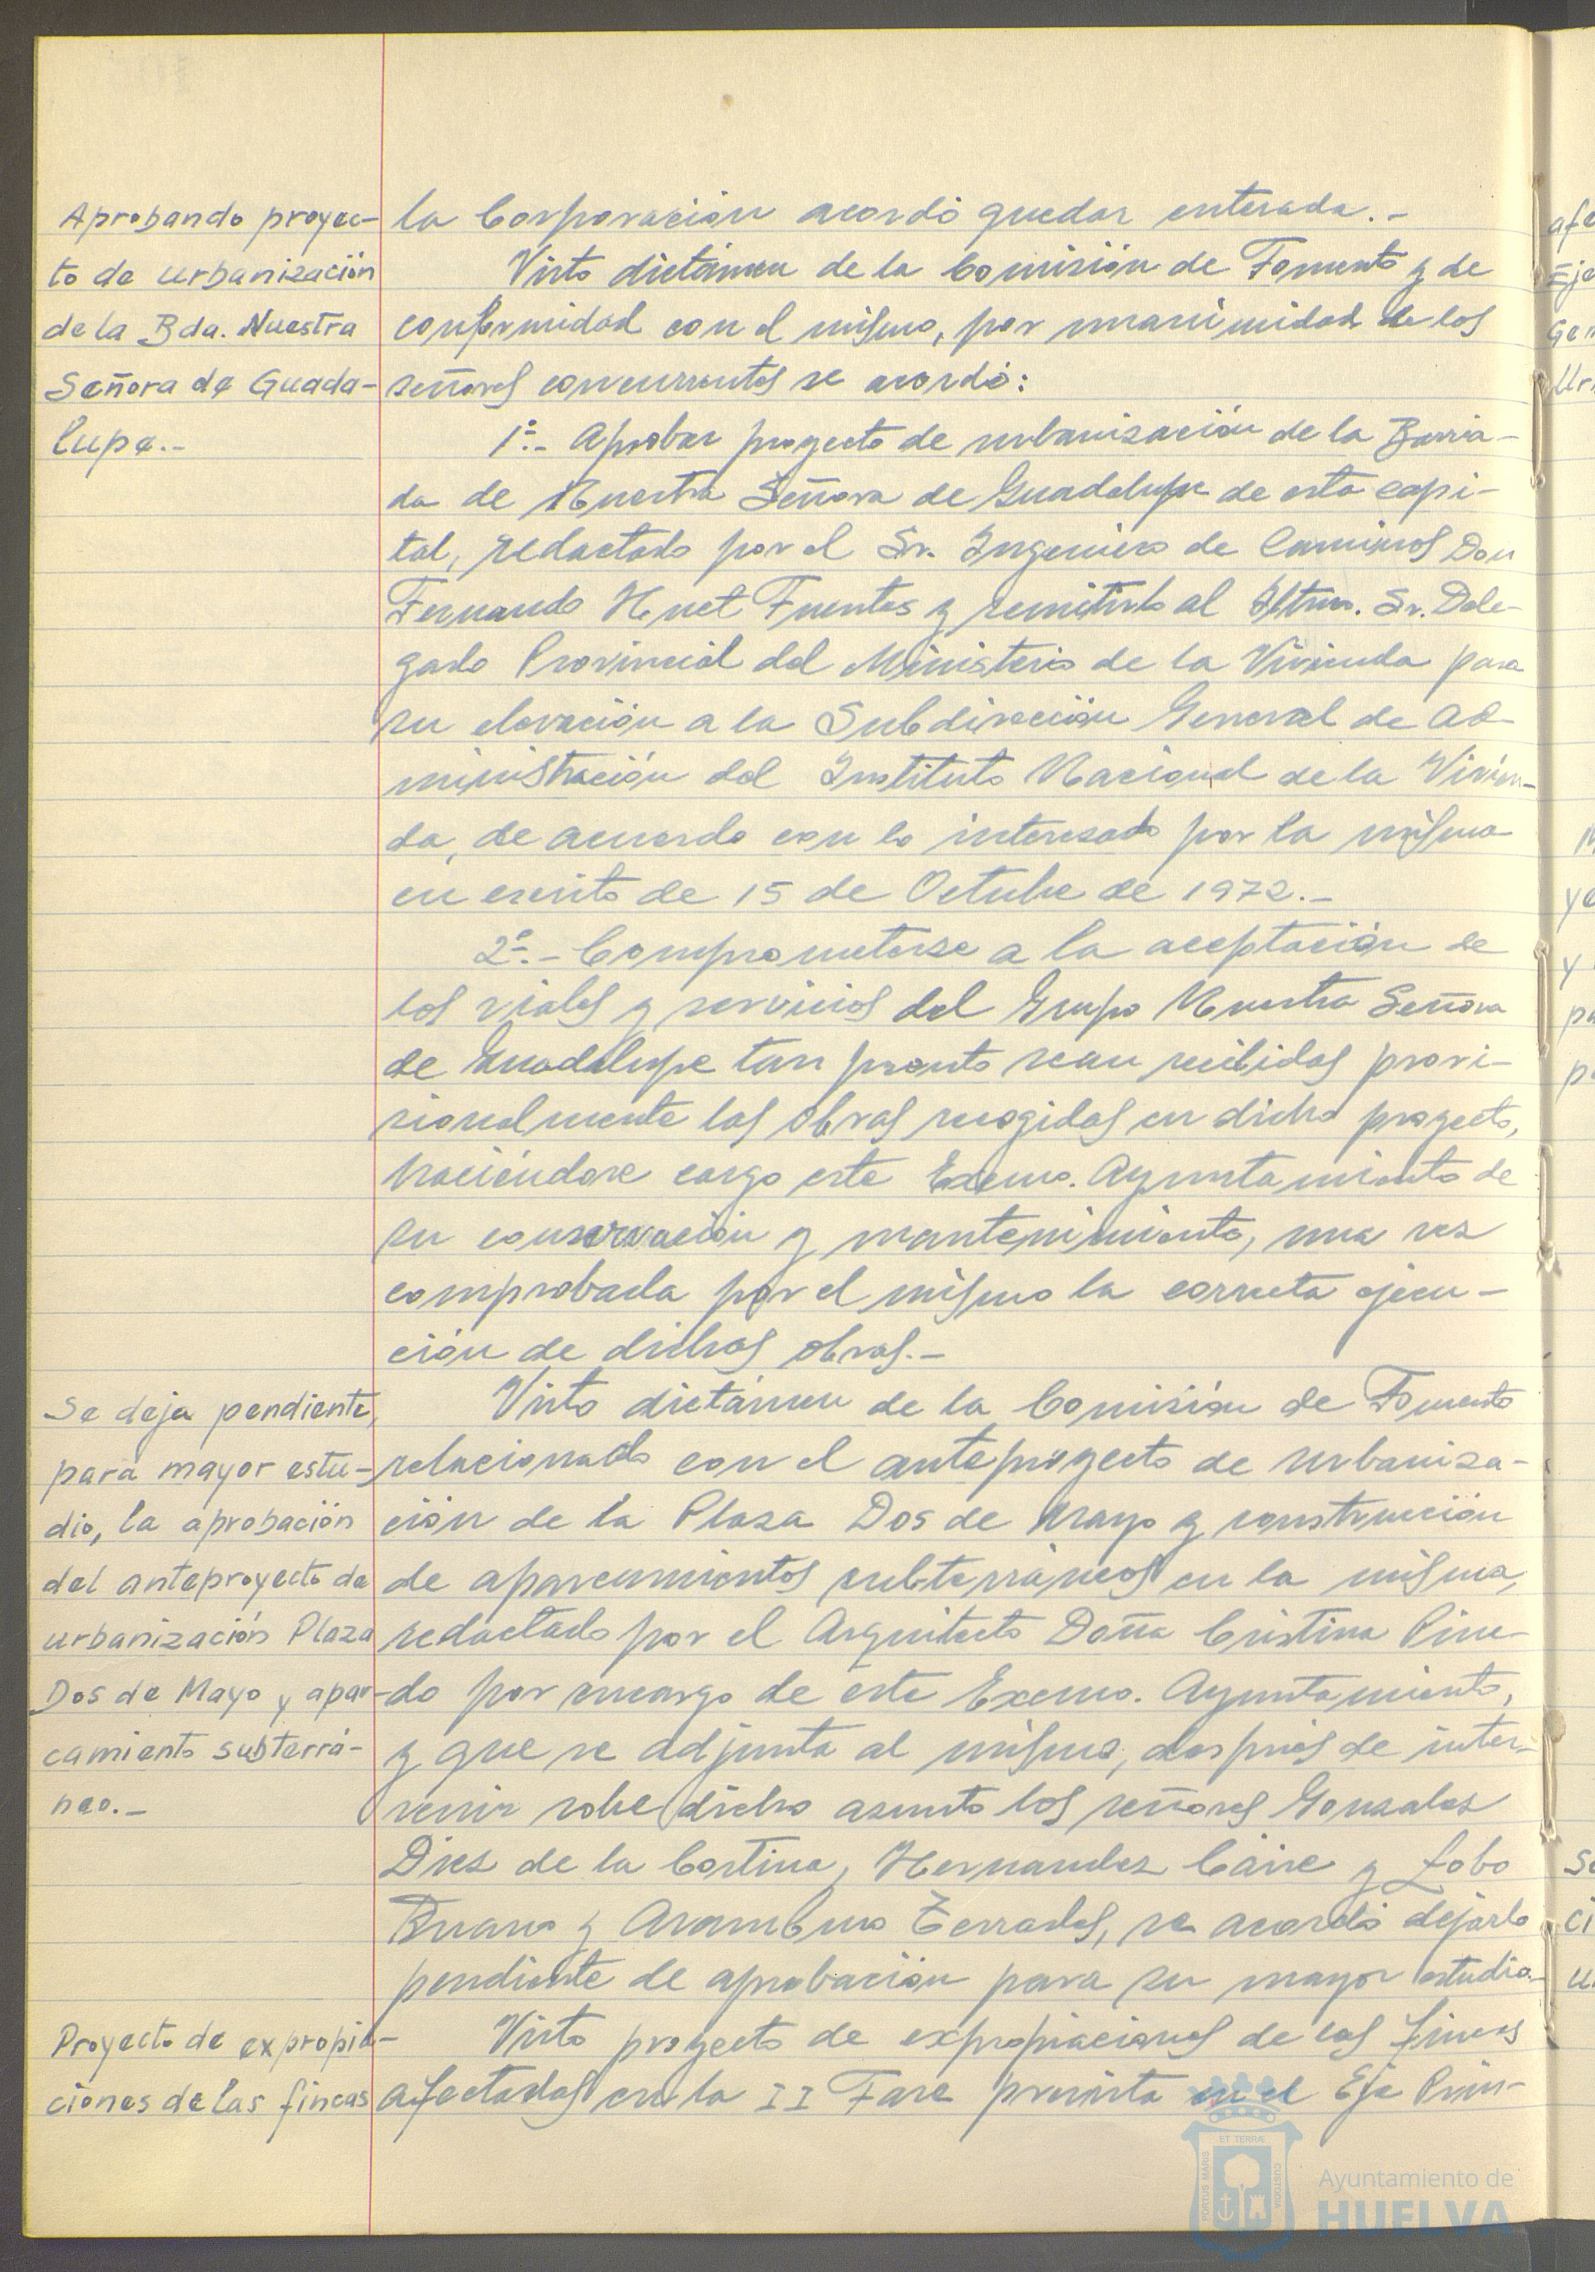 Aprobando proyec-
to de urbanización
de la Bda. Nuestra
Señora de Guada-
lupe.-
la Corporación acordó quedar enterada.-
Visto dictámen de la Comisión de Fomento y de
conformidad con el mismo, por unanimidad de los
señores concurrentes se acordó:
1º.- Aprobar proyecto de urbanización de la Barria-
da de Nuestra Señora de Guadalupe de esta capi-
tal, redactado por el Sr. Ingeniero de Caminos Don
Fernando Huet Fuentes y remitirlo al Iltmo. Sr. Dele-
gado Provincial del Ministerio de la Vivienda para
su elevación a la Subdirección General de Ad-
ministración del Instituto Nacional de la Vivien-
da, de acuerdo con lo interesado por la misma
en escrito de 15 de Octubre de 1972.-
2º.- Comprometerse a la aceptación de
los viales y servicios del Grupo Nuestra Señora
de Guadalupe tan pronto sean recibidas provi-
sionalmente las obras recogidas en dicho proyecto,
haciéndose cargo este Excmo. Ayuntamiento de
su conservación y mantenimiento, una vez
comprobada por el mismo la correcta ejecu-
ción de dichas obras.-
Se deja pendiente,
para mayor estu-
dio, la aprobación
del anteproyecto de
urbanización Plaza
Dos de Mayo y apar-
camiento subterrá-
neo.-
Visto dictámen de la Comisión de Fomento
relacionado con el anteproyecto de urbaniza-
ción de la Plaza Dos de Mayo y construcción
de aparcamientos subterráneos en la misma,
redactado por el Arquitecto Doña Cristina Pine-
do por encargo de este Excmo. Ayuntamiento,
y que se adjunta al mismo, después de inter-
venir sobre dicho asunto los señores Gonzalez
Diez de la Cortina, Hernandez Caire y Lobo
y Aramburo Terrades, se acordó dejarlo
pendiente de aprobación para su mayor estudio.-
Proyecto de expropia-
ciones de las fincas
Visto proyecto de expropiaciones de las fincas
afectadas en la II Fase prevista en el Eje Prin-
PORTUS MARIS
ET TERRÆ
CUSTODIA
Ayuntamiento de
HUELVA